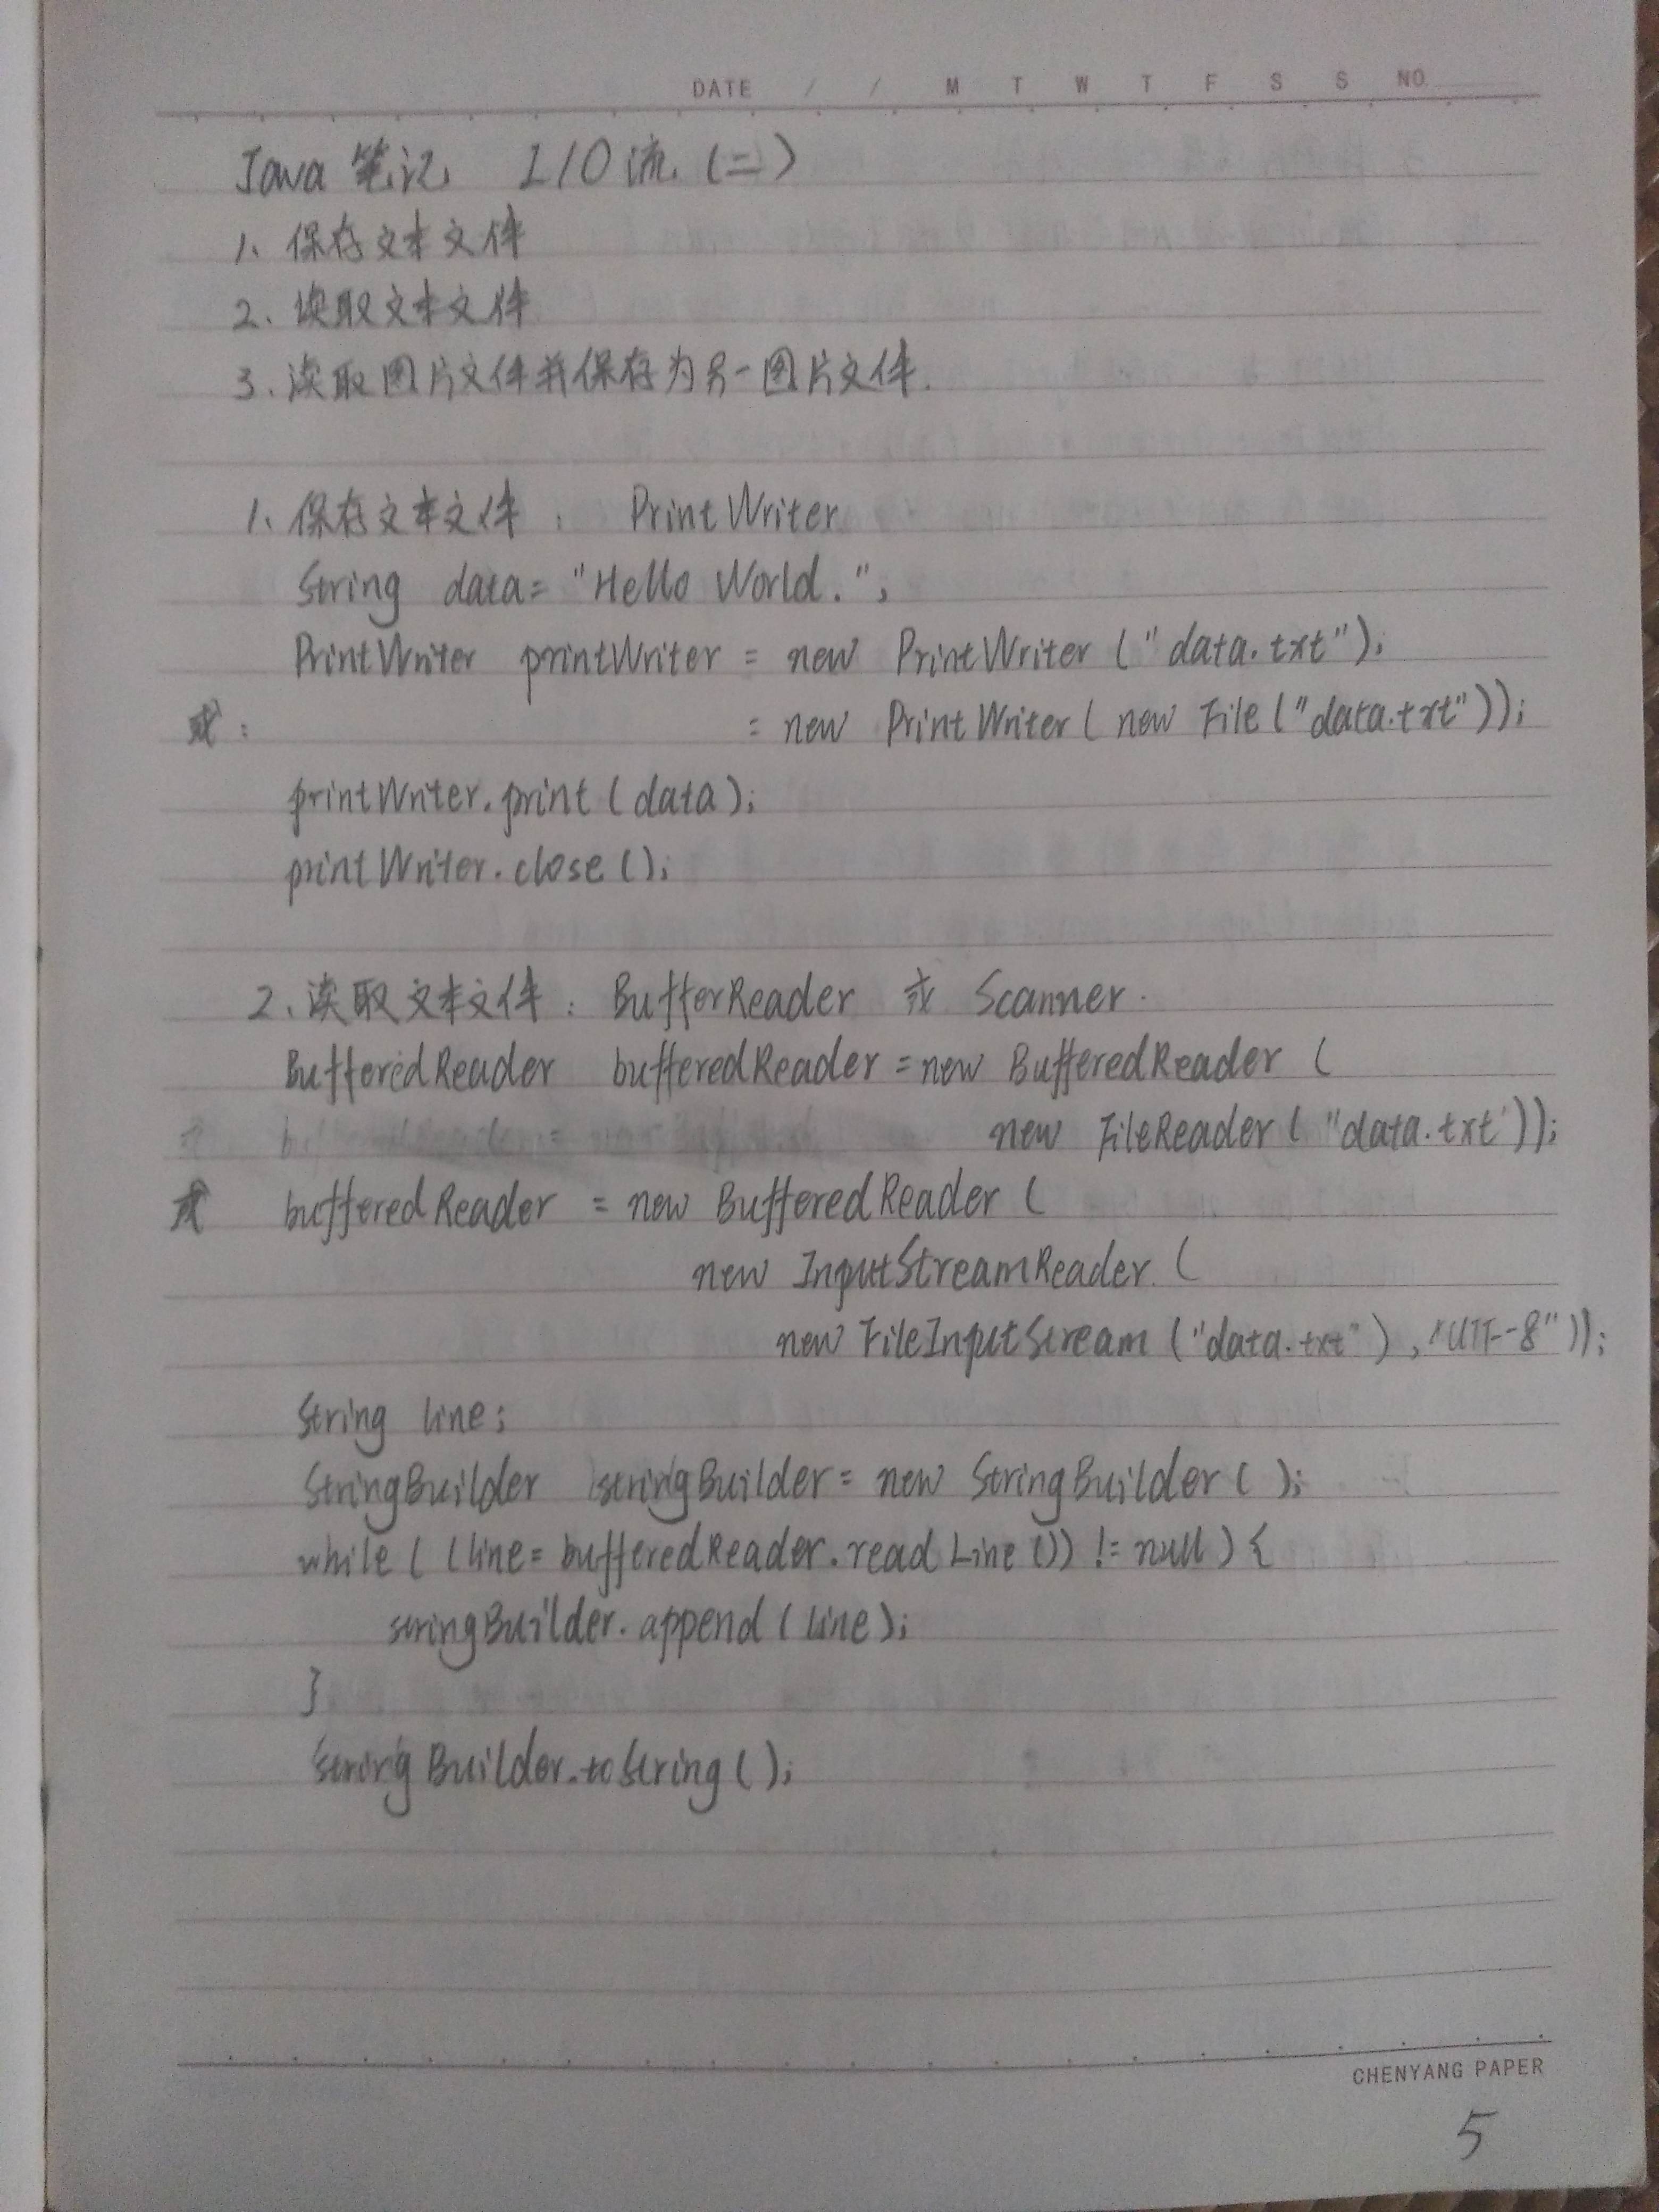 DATE / / M T W T F S S NO.
Java 笔记 I/O 流 (二)
1、保存文本文件
2、读取文本文件
3、读取图片文件并保存为另一图片文件.
1、保存文本文件: PrintWriter
String data = "Hello World.";
PrintWriter printWriter = new PrintWriter ("data.txt");
或: = new PrintWriter ( new File ("data.txt"));
printWriter.print (data);
printWriter.close ();
2、读取文本文件: BufferReader 或 Scanner.
BufferedReader bufferedReader = new BufferedReader (
new FileReader ( "data.txt"));
或 bufferedReader = new BufferedReader (
new InputStreamReader (
new FileInputStream ("data.txt") , "UTF-8"));
String line;
StringBuilder stringBuilder = new StringBuilder ( );
while ( (line = bufferedReader.readLine ()) != null ) {
stringBuilder.append (line);
}
stringBuilder.toString ();
CHENYANG PAPER
5